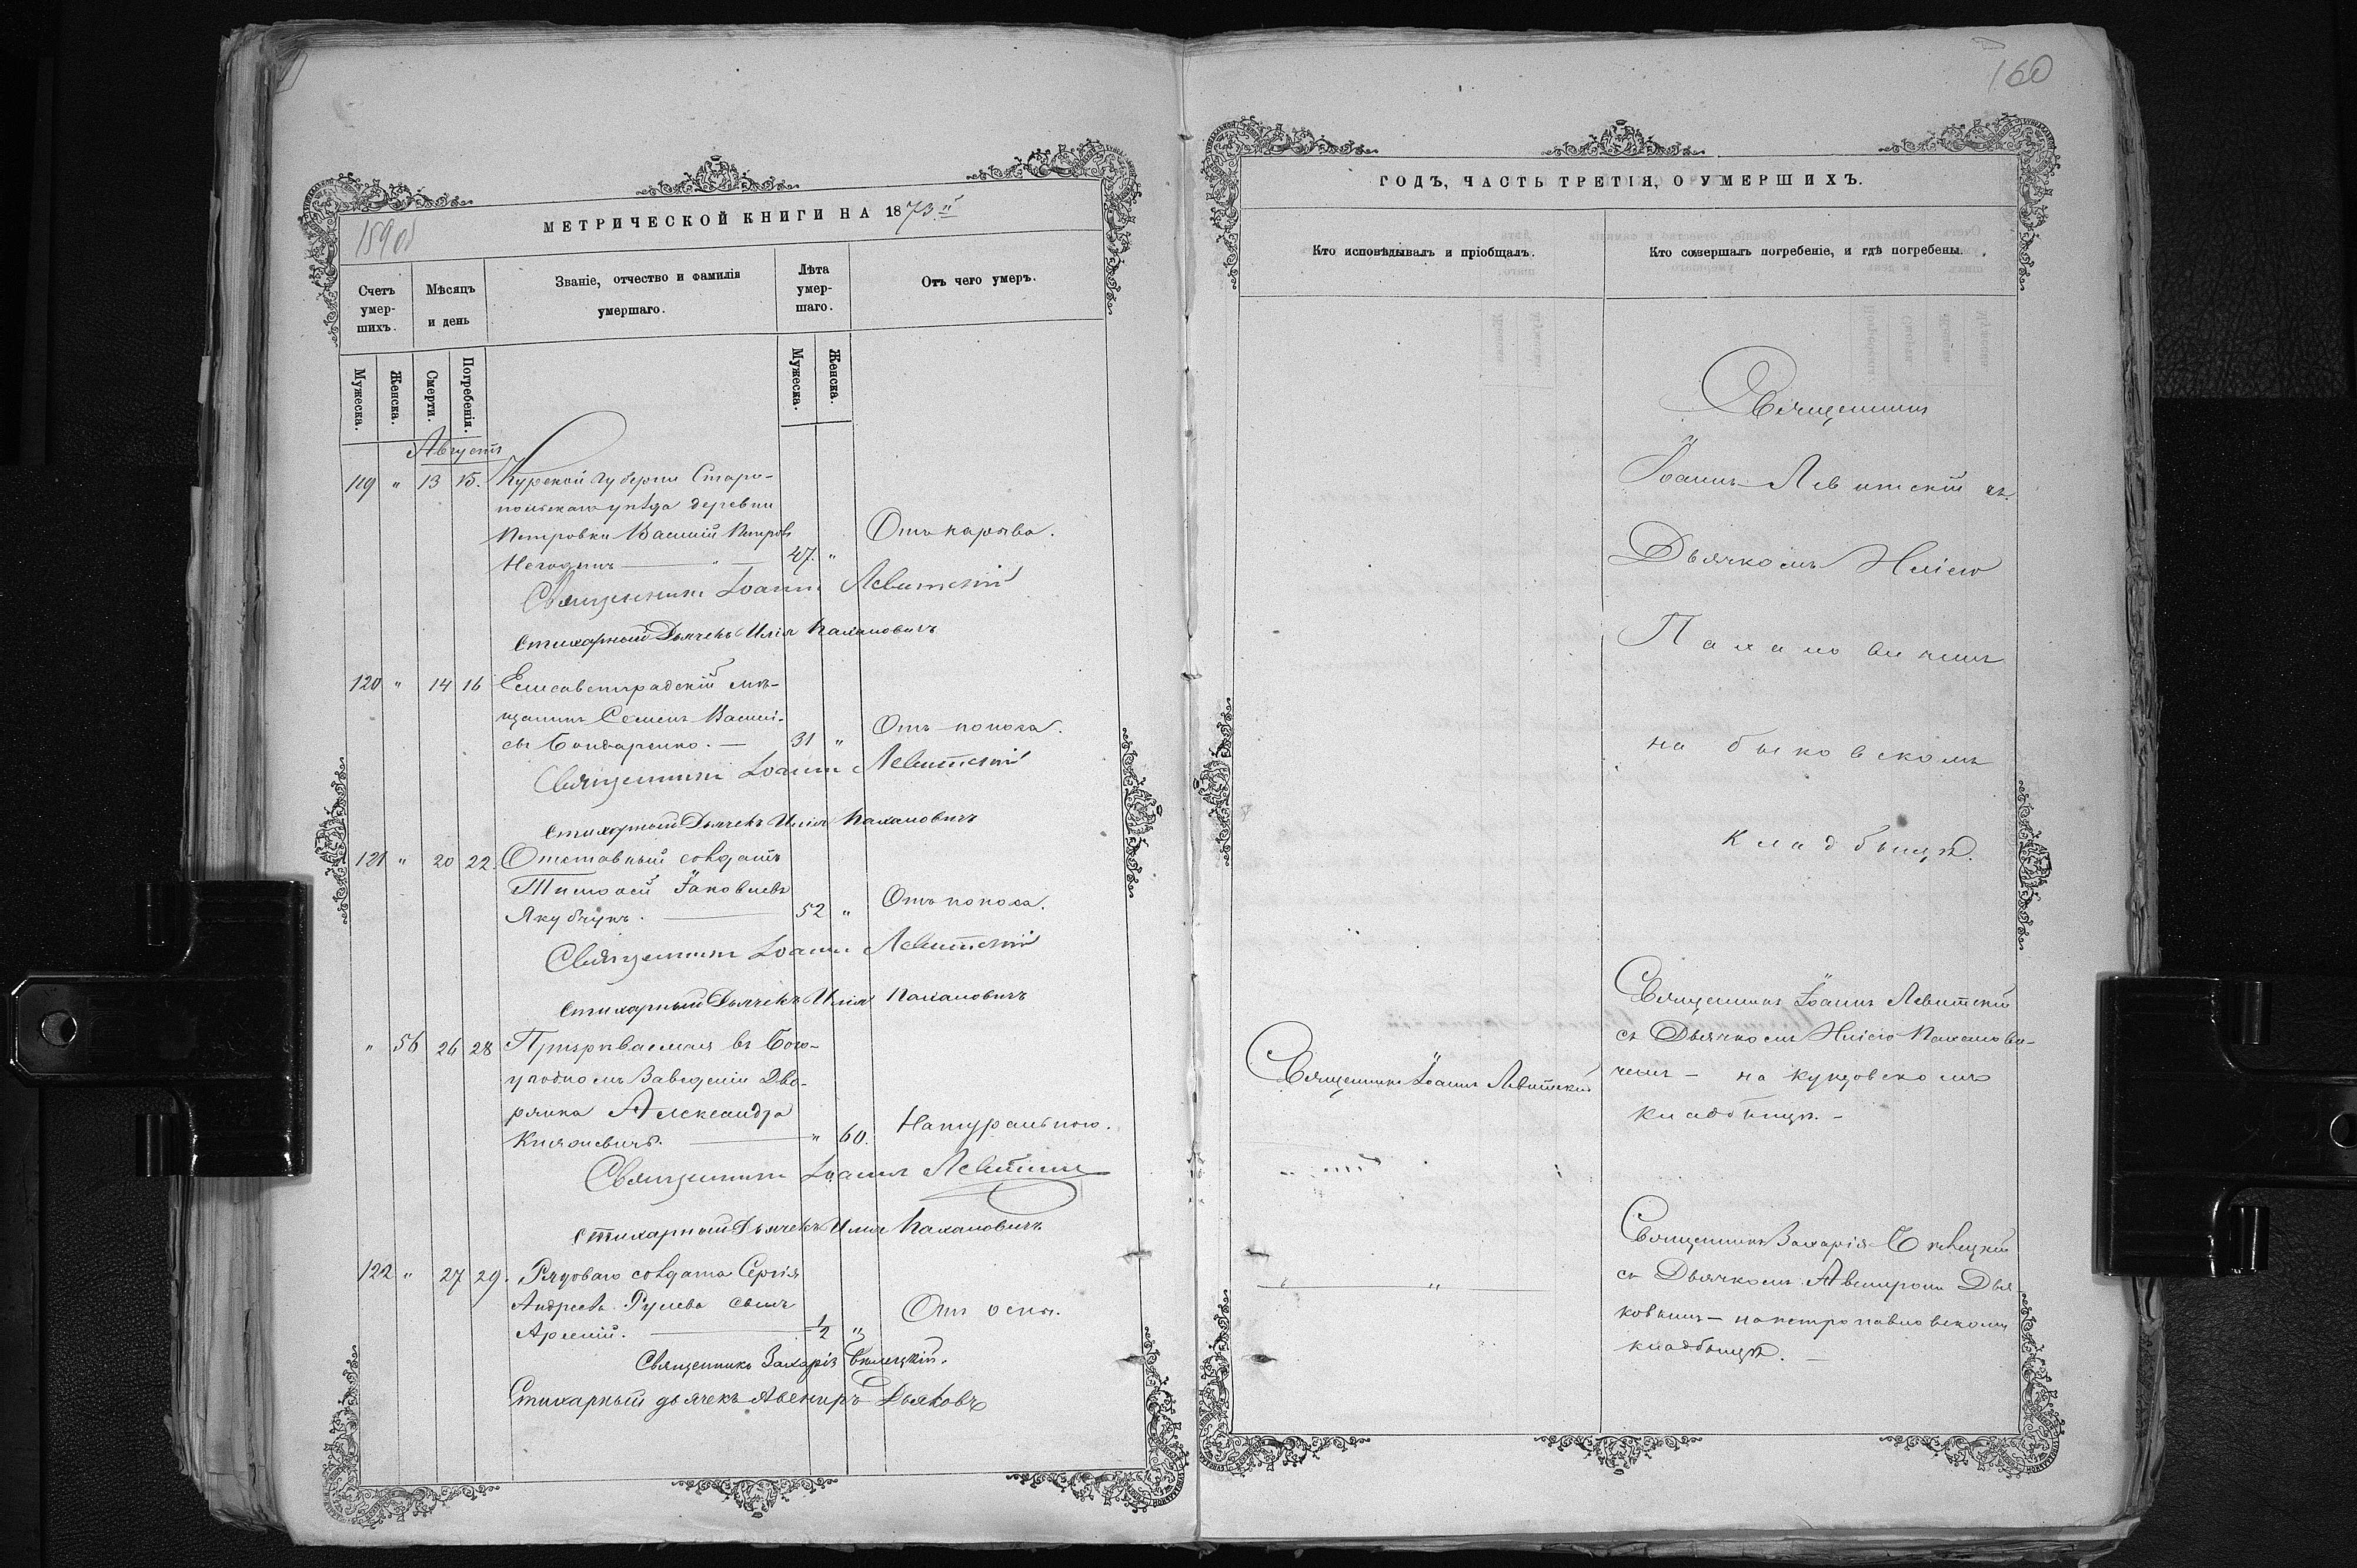 160
МЕТРИЧЕСКОЙ КНИГИ НА 1873й
159об
Счетъ умер-шихъ.
Мѣсяцъ и день
Званіе, отчество и фамилія умершаго.
Лѣта умер-шаго.
Отъ чего умеръ.
Мужеска.
Женска.
Смерти.
Погребенія.
Мужеска.
Женска.
Августъ
119 " 13 15. Курской губерніи Старо-
польскаго уѣзда деревни
Петровки Василій Петровъ
47. " Отъ нарыва.
Священникъ Іоаннъ Левитскій
Стихарный Дьячекъ Илія Паханович
120 " 14 16 Елисаветградскій мѣ-
щанинъ Семенъ Василі-
евъ Бондаренко. — 31 " Отъ поноса.
Священникъ Іоаннъ Левитскій
Стихарный Дьячекъ Илія Пахановичъ
121 " 20 22. Отставный солдатъ
Тимофей Іаковлевъ
Якубчукъ. — 52 " Отъ поноса.
Священникъ Іоаннъ Левитскій
Стихарный Дьячекъ Илія Пахановичъ
" 56 26 28 Призрѣваемая въ Бого-
угодномъ Заведеніи Дво-
рянка Александра
Княжевичъ. — " 60. Натурально.
Священникъ Іоаннъ Левитскій
Стихарный Дьячекъ Илія Пахановичъ
122 " 27 29. Рядоваго солдата Сергія
Андреева Рулева сынъ
Арсеній. — 1/2 " Отъ оспы.
Священникъ Захарія Бѣлецкій.
Стихарный дьячекъ Авениръ Дьяковъ
ГОДЪ, ЧАСТЬ ТРЕТІЯ, О УМЕРШИХЪ.
Кто исповѣдывалъ и пріобщалъ.
Кто совершалъ погребеніе, и гдѣ погребены.
Священникъ
Іоаннъ Левитскій съ
Дьячкомъ Иліею
Пахановичемъ
на быковскомъ
кладбищѣ.
Священникъ Іоаннъ Левитскій
Священникъ Іоаннъ Левитскій
съ Дьячкомъ Иліею Паханови-
чемъ — на
кладбищѣ. —
" — "
Священникъ Захарія Бѣлецкій
съ Дьячкомъ Авениромъ Дья-
ковымъ — на петропавловскомъ
кладбищѣ. —